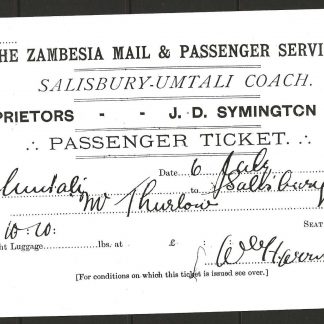 HE ZAMBESIA MAIL & PASSENGER SERVI
SALISBURY-UMTALI COACH.
PRIETORS - - J. D. SYMINGTON
∴ PASSENGER TICKET. ∴
Date 6 July
Umtali to Salisbury
Mr Thurlow
10.10: SEAT
ht Luggage lbs. at £
[For conditions on which this ticket is issued see over.]